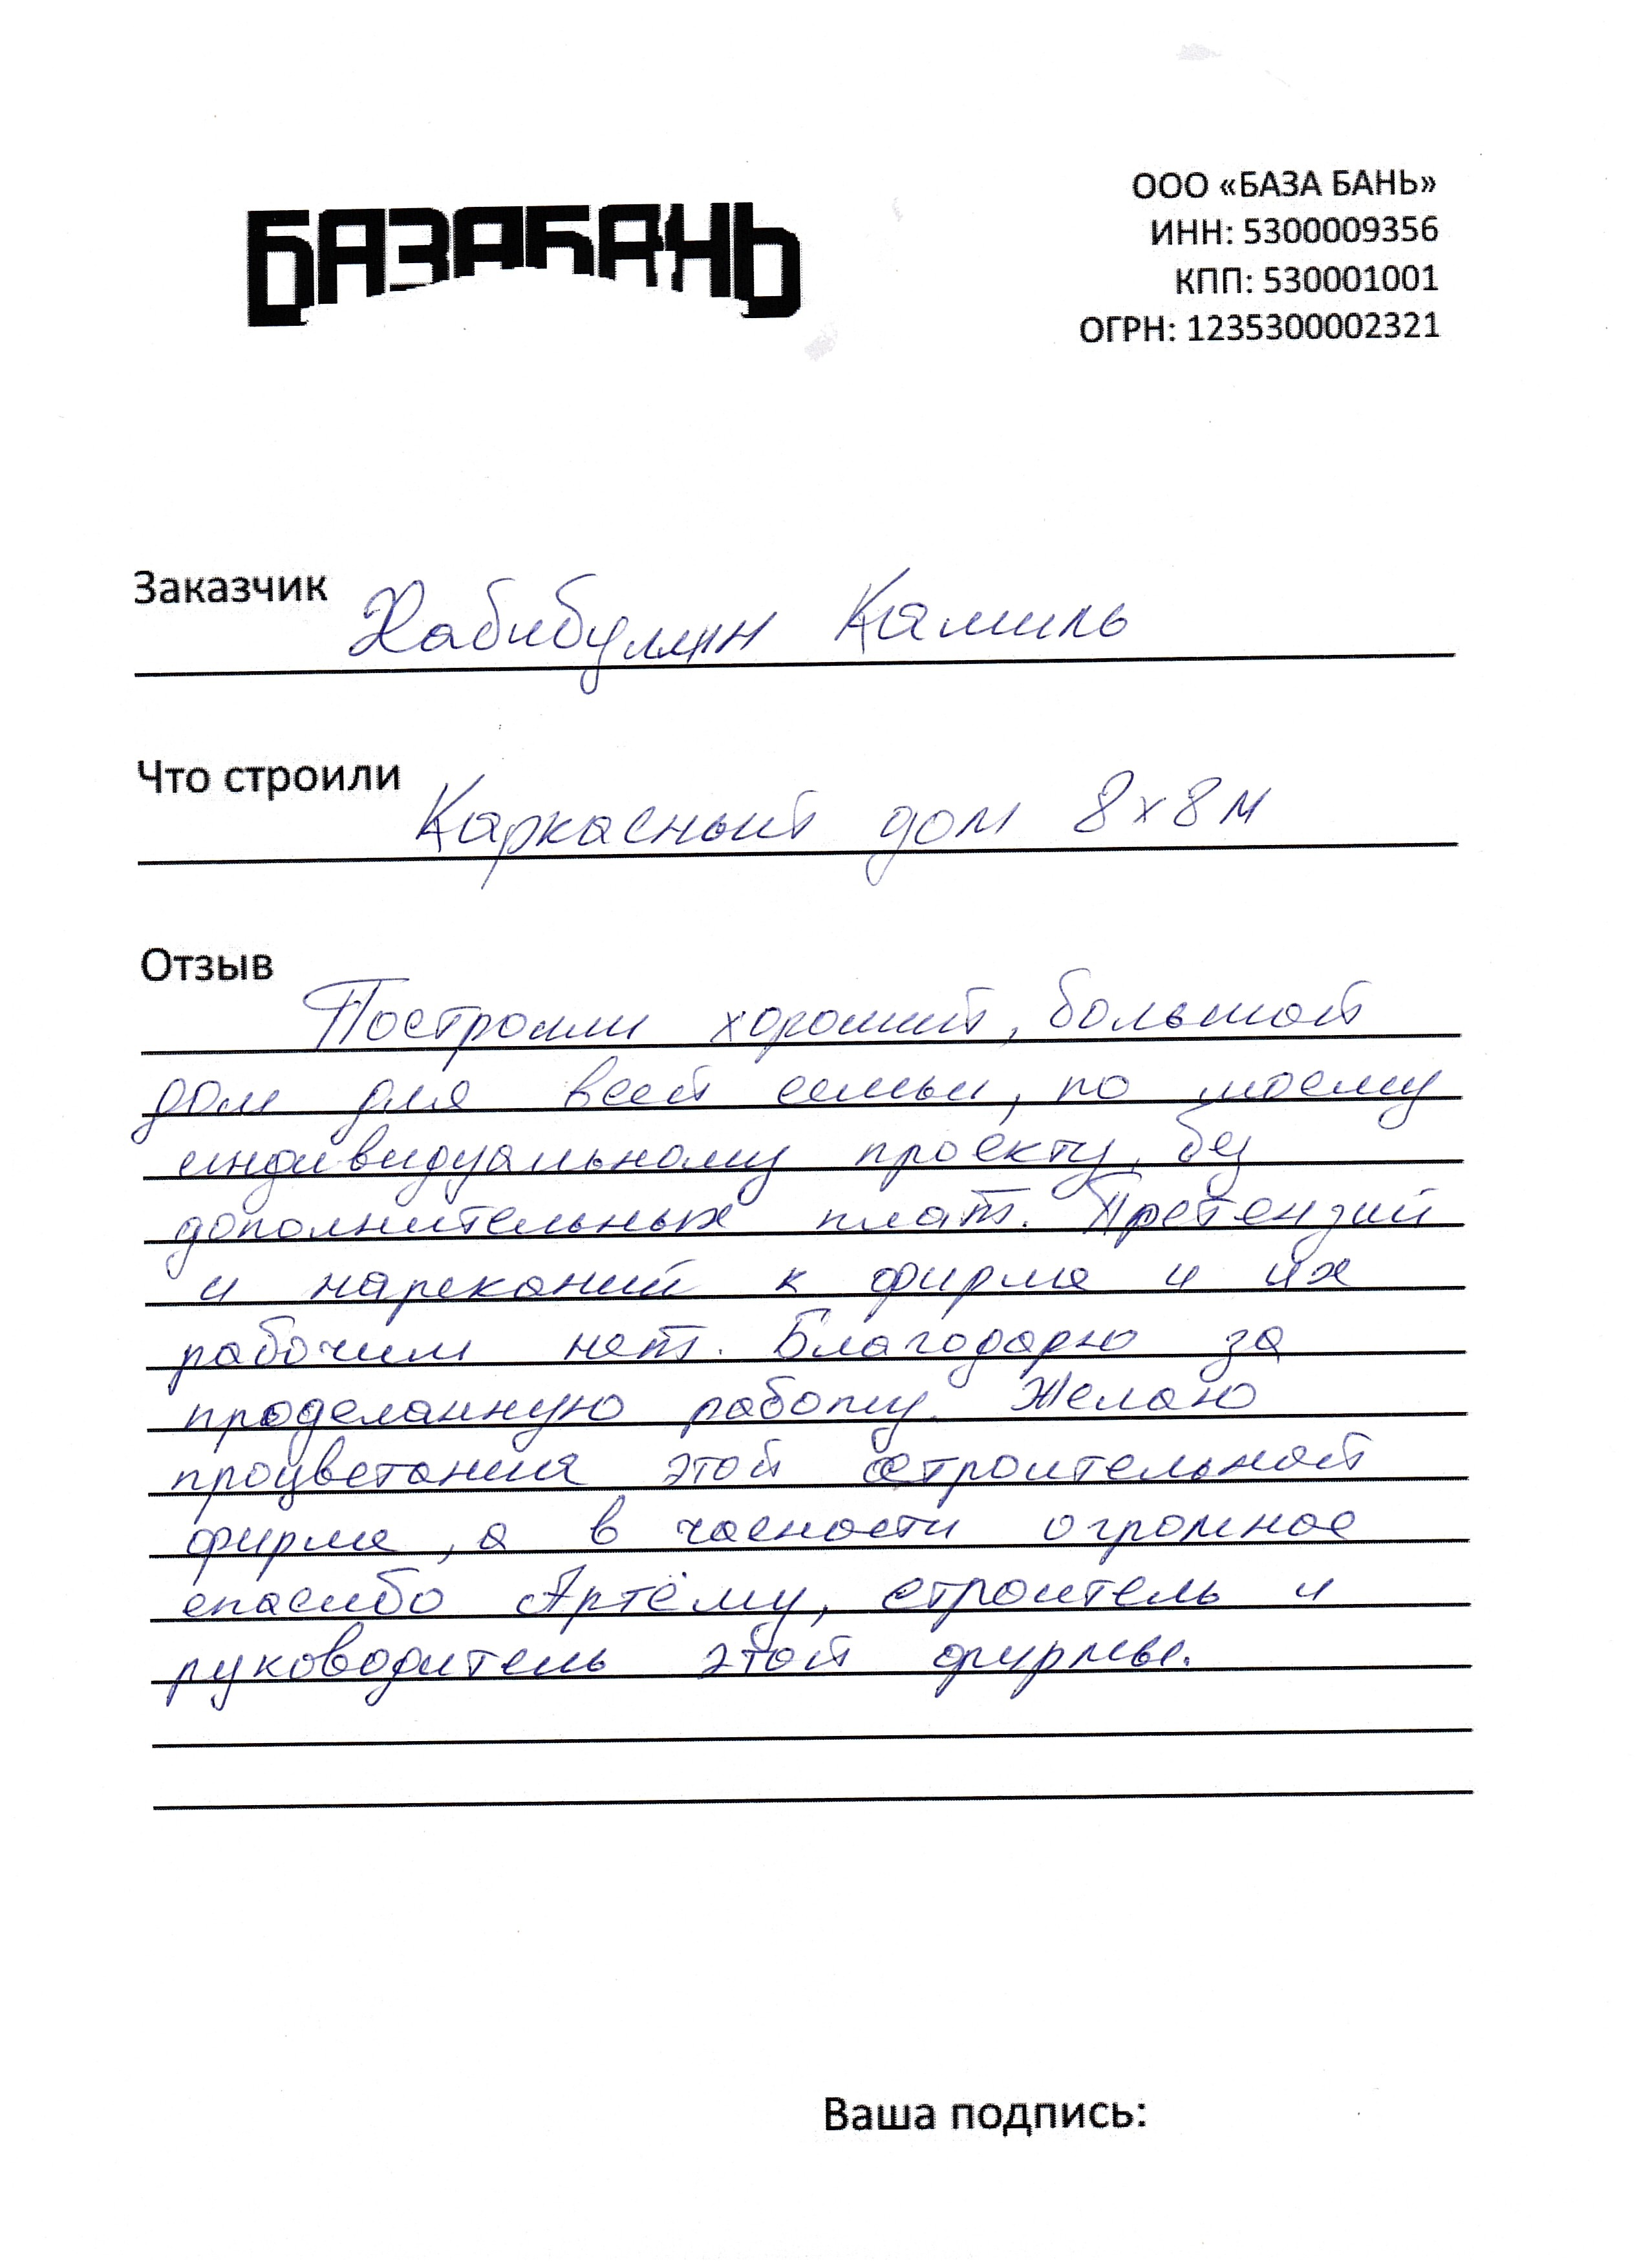 БАЗАБАНЬ
ООО «БАЗА БАНЬ»
ИНН: 5300009356
КПП: 530001001
ОГРН: 1235300002321
Заказчик Хабибуллин Камиль
Что строили Каркасный дом 8х8м
Отзыв
Построили хороший, большой
дом для всей семьи, по моему
индивидуальному проекту, без
дополнительных плат. Претензий
и нареканий к фирме и их
рабочим нет. Благодарю за
проделанную работу. Желаю
процветания этой строительной
фирме, а в часности огромное
спасибо Артёму, строитель и
руководитель этой фирмы.
Ваша подпись: